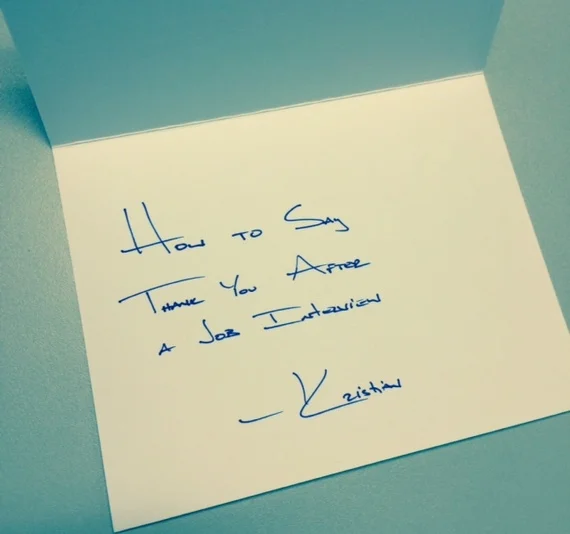 How to Say
Thank You After
a Job Interview
– Kristian